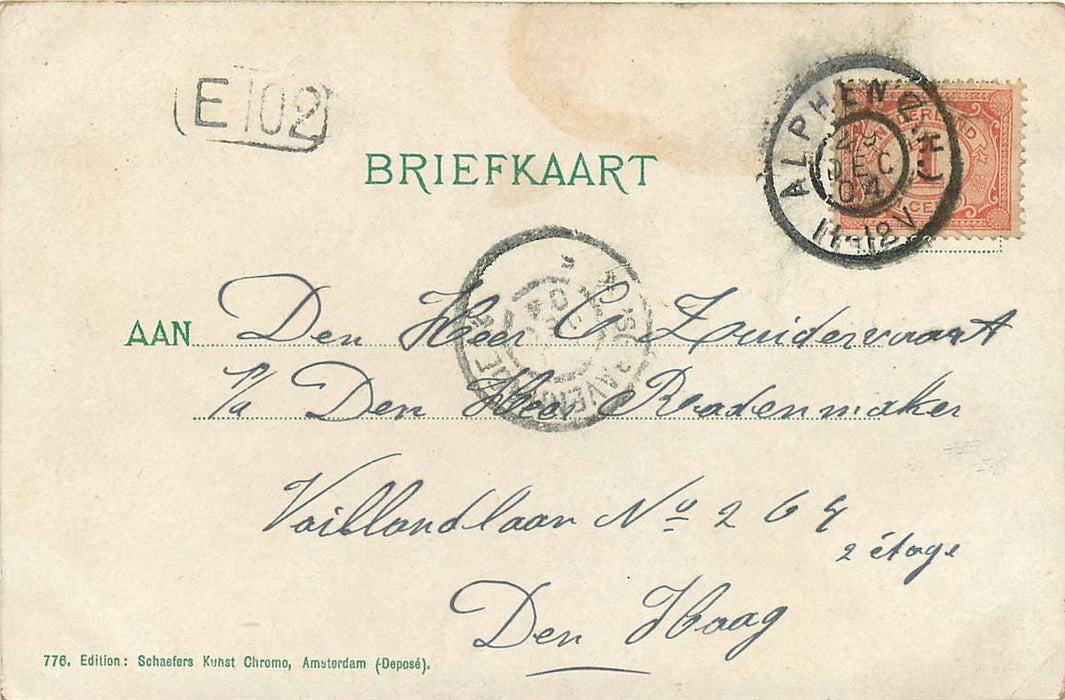 E 102
BRIEFKAART
ALPHEN (Z.H.)
DEC
04
11-12V
NEDERLAND
1
CENT
'S GRAVENHAGE
AAN Den Heer C Zuidervaart
p/a Den Heer Raadenmaker
Vaillandlaan No 269
2 étage
Den Haag
776. Edition: Schaefers Kunst Chromo, Amsterdam (Deposé).